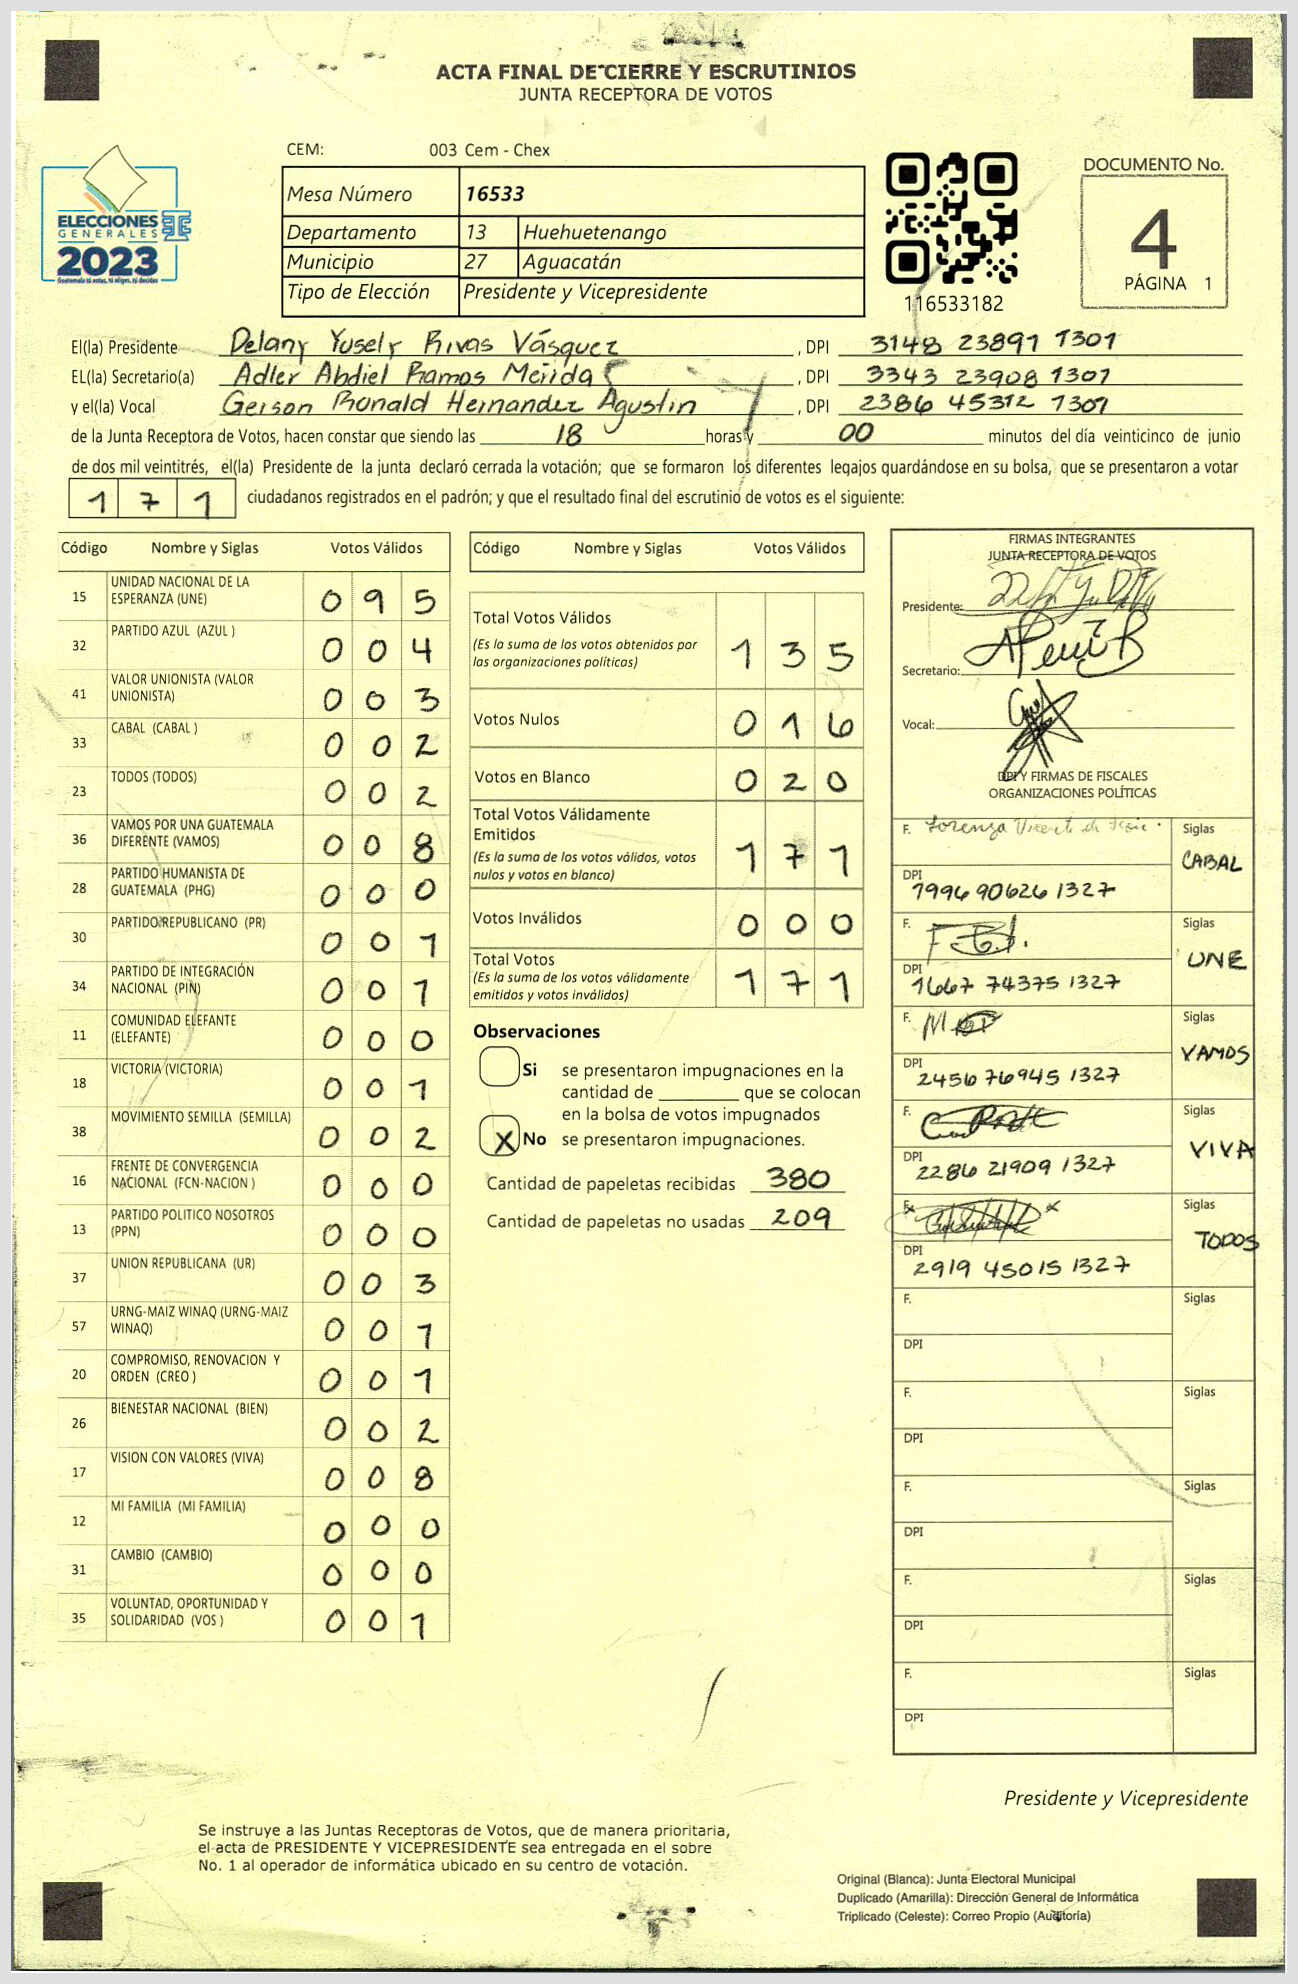 ACTA FINAL DE CIERRE Y ESCRUTINIOS
JUNTA RECEPTORA DE VOTOS
CEM: 003 Cem - Chex
ELECCIONES
GENERALES
2023
Mesa Número 16533
Departamento 13 Huehuetenango
Municipio 27 Aguacatán
Tipo de Elección Presidente y Vicepresidente
116533182
DOCUMENTO No.
4
PÁGINA 1
El(la) Presidente Delany Yusely Rivas Vásquez, DPI 3148 23891 1301
EL(la) Secretario(a) Adler Abdiel Ramos Merida, DPI 3343 23908 1301
y el(la) Vocal Gerson Ronald Hernandez Agustin, DPI 2386 45312 1301
de la Junta Receptora de Votos, hacen constar que siendo las 18 horas y 00 minutos del día veinticinco de junio
de dos mil veintitrés, el(la) Presidente de la junta declaró cerrada la votación; que se formaron los diferentes legajos guardándose en su bolsa, que se presentaron a votar
1 7 1 ciudadanos registrados en el padrón; y que el resultado final del escrutinio de votos es el siguiente:
Código Nombre y Siglas Votos Válidos
15 UNIDAD NACIONAL DE LA ESPERANZA (UNE) 0 9 5
32 PARTIDO AZUL (AZUL ) 0 0 4
41 VALOR UNIONISTA (VALOR UNIONISTA) 0 0 3
33 CABAL (CABAL ) 0 0 2
23 TODOS (TODOS) 0 0 2
36 VAMOS POR UNA GUATEMALA DIFERENTE (VAMOS) 0 0 8
28 PARTIDO HUMANISTA DE GUATEMALA (PHG) 0 0 0
30 PARTIDO REPUBLICANO (PR) 0 0 1
34 PARTIDO DE INTEGRACIÓN NACIONAL (PIN) 0 0 1
11 COMUNIDAD ELEFANTE (ELEFANTE) 0 0 0
18 VICTORIA (VICTORIA) 0 0 1
38 MOVIMIENTO SEMILLA (SEMILLA) 0 0 2
16 FRENTE DE CONVERGENCIA NACIONAL (FCN-NACION ) 0 0 0
13 PARTIDO POLITICO NOSOTROS (PPN) 0 0 0
37 UNION REPUBLICANA (UR) 0 0 3
57 URNG-MAIZ WINAQ (URNG-MAIZ WINAQ) 0 0 1
20 COMPROMISO, RENOVACION Y ORDEN (CREO ) 0 0 1
26 BIENESTAR NACIONAL (BIEN) 0 0 2
17 VISION CON VALORES (VIVA) 0 0 8
12 MI FAMILIA (MI FAMILIA) 0 0 0
31 CAMBIO (CAMBIO) 0 0 0
35 VOLUNTAD, OPORTUNIDAD Y SOLIDARIDAD (VOS ) 0 0 1
Código Nombre y Siglas Votos Válidos
Total Votos Válidos 1 3 5
(Es la suma de los votos obtenidos por
las organizaciones políticas)
Votos Nulos 0 1 6
Votos en Blanco 0 2 0
Total Votos Válidamente
Emitidos 1 7 1
(Es la suma de los votos válidos, votos
nulos y votos en blanco)
Votos Inválidos 0 0 0
Total Votos 1 7 1
(Es la suma de los votos válidamente
emitidos y votos inválidos)
Observaciones
Si se presentaron impugnaciones en la
cantidad de ________ que se colocan
en la bolsa de votos impugnados
X No se presentaron impugnaciones.
Cantidad de papeletas recibidas 380
Cantidad de papeletas no usadas 209
FIRMAS INTEGRANTES
JUNTA RECEPTORA DE VOTOS
Presidente:
Secretario:
Vocal:
DPI Y FIRMAS DE FISCALES
ORGANIZACIONES POLÍTICAS
F. Lorenza Siglas
DPI 1996 90626 1327 CABAL
F. Siglas
DPI 1667 74375 1327 UNE
F. Siglas
DPI 2456 76945 1327 VAMOS
F. Siglas
DPI 2286 21909 1327 VIVA
F. Siglas
DPI 2919 45015 1327 TODOS
F. Siglas
DPI
F. Siglas
DPI
F. Siglas
DPI
F. Siglas
DPI
F. Siglas
DPI
Presidente y Vicepresidente
Se instruye a las Juntas Receptoras de Votos, que de manera prioritaria,
el acta de PRESIDENTE Y VICEPRESIDENTE sea entregada en el sobre
No. 1 al operador de informática ubicado en su centro de votación.
Original (Blanca): Junta Electoral Municipal
Duplicado (Amarilla): Dirección General de Informática
Triplicado (Celeste): Correo Propio (Auditoría)